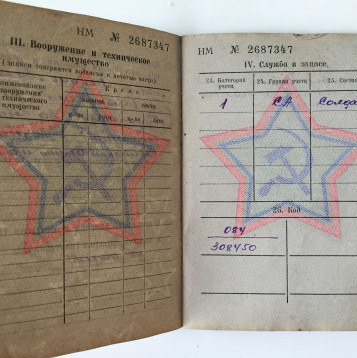 НМ № 2687347
III. Вооружение и техническое
имущество
(записи заверяются подписью и печатью части)
Наименование
вооружения
технического
имущества
НМ № 2687347
IV. Служба в запасе.
23. Категория
учета
24. Группа учета
25. Соста
1
СА
Солда
26. Код
084
308450